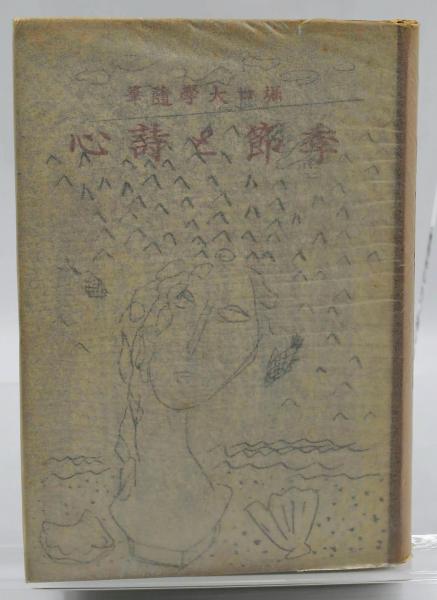 堀口大學隨筆
季節と詩心